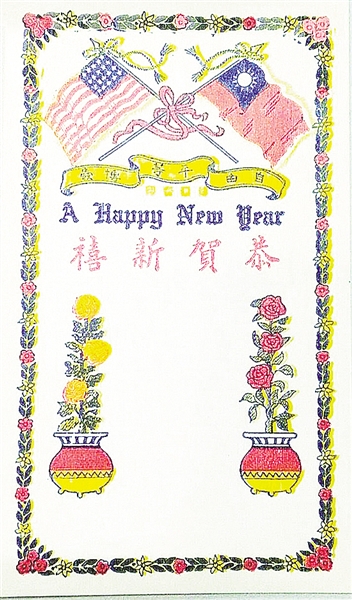 自由平等博愛
A Happy New Year
恭賀新禧